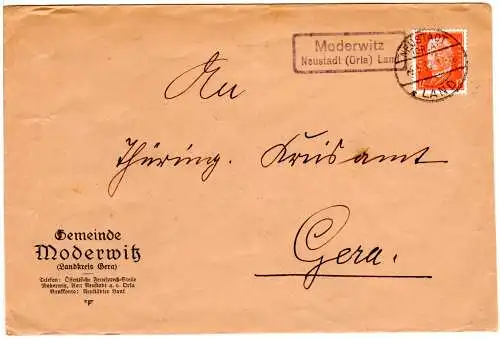 Moderwitz
Neustadt (Orla) Land
NEUSTADT
LAND
An
Thüring. Kreisamt
Gera.
Gemeinde
Moderwitz
(Landkreis Gera)
Telefon: Öffentliche Fernsprech-Stelle
Moderwitz, Amt Neustadt a. d. Orla
Bankkonto: Neustädter Bank